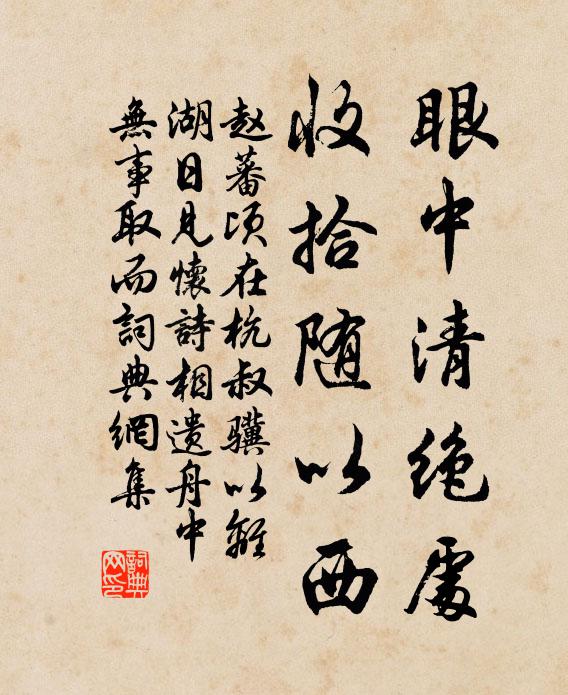 眼中清絶處
收拾随以西
赵蕃顷在杭叔骥以離
湖日見懷詩相遺舟中
無事取而詞典網集
詞典
网印